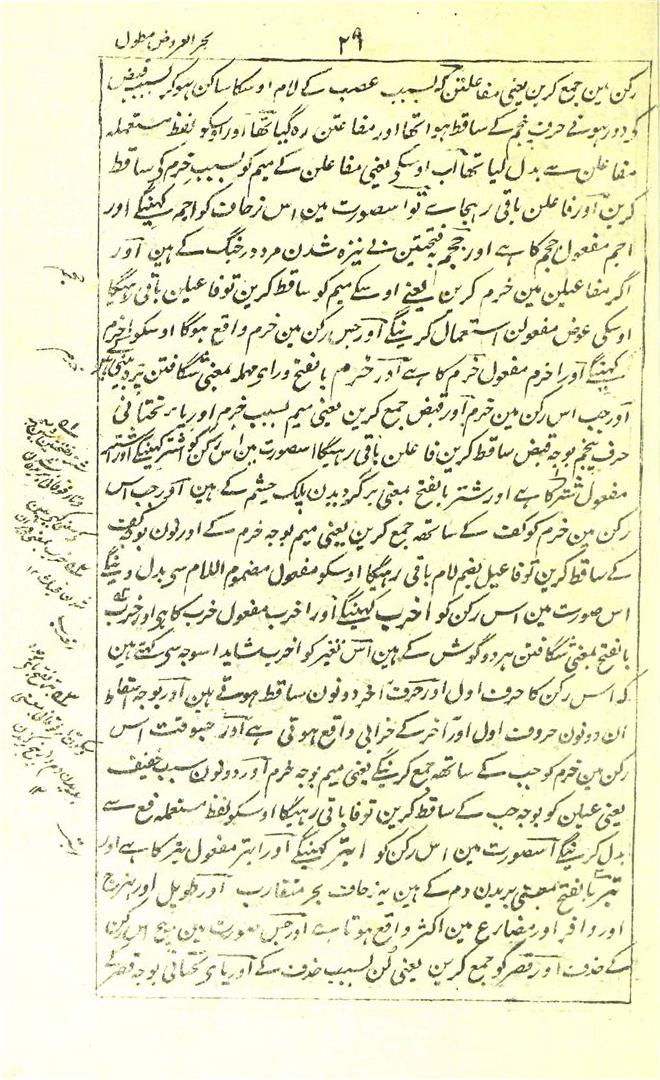 ۲۹
بحر العروض مطول
رکن مین جمع کرین یعنی مفاعلتن کہ بسبب عصب کے لام اوسکا ساکن ہوکر بسبب قبض
کو دور ہونے حرف پنجم کے ساقط ہوا تھا اور مفاعتن رہ گیا تھا اور اوسکو لفظ مستعملہ
مفاعلن سے بدل کیا تھا اب اوسکی یعنی مفاعلن کے میم کو بسبب خرم کی ساقط
کرین اور فاعلن باقی رہجاے تو اسصورت مین اس زحافت کو اجم کہینگے اور
اجم مفعول جمم کا ہے اور جمم بفتحتین بے نیزہ شدن مرد در جنگ کے ہین اور
اگر مفاعیلن مین خرم کرین یعنے اوسکے میم کو ساقط کرین تو فاعیلن باقی رہیگا
اوسکی عوض مفعولن استعمال کرینگے اور جس رکن مین خرم واقع ہوگا اوسکو اخرم
کہینگے اور اخرم مفعول خرم کا ہے اور خرم بالفتح و رای مہملہ بمعنی شگافتن پرہ بینی
اور جب اس رکن مین خرم اور قبض جمع کرین یعنی میم بسبب خرم اور یاے تحتانی
حرف پنجم بوجہ قبض ساقط کرین فاعلن باقی رہیگا اسصورت مین اس رکن کو اشتر کہینگے اور اشتر
مفعول شتر کا ہے اور شتر بالفتح بمعنی برگردیدن پلک چشم کے ہین اور جب اس
رکن مین خرم کو کف کے ساتھہ جمع کرین یعنی میم بوجہ خرم کے اور نون بوجہ کف
کے ساقط کرین تو فاعیل بضم لام باقی رہیگا اوسکو مفعول مضموم اللام سے بدل دینگے
اس صورت مین اس رکن کو اخرب کہینگے اور اخرب مفعول خرب کا ہے اور خرب
بالفتح بمعنی شگافتن ہر دو گوش کے ہین اس تغیر کو اخرب شاید اسوجہ سی کہتے ہین
کہ اس رکن کا حرف اول اور حرف اخر دونون ساقط ہوتے ہین اور بوجہ اسقاط
ان دونون حروف اول اور آخر کے خرابی واقع ہوتی ہے اور جسوقت اس
رکن مین خرم کو جب کے ساتھہ جمع کرینگے یعنی میم بوجہ خرم اور دونون سبب خفیف
یعنی عیلن کو بوجہ جب کے ساقط کرین تو فا باقی رہیگا اوسکو لفظ مستعملہ فع سے
بدل کرینگے اسصورت مین اس رکن کو ابتر کہینگے اور ابتر مفعول بتر کا ہے اور
بتر بالفتح بمعنی بریدن دم کے ہین یہ زحافت بحر متقارب اور طویل اور ہزج
اور وافر اور مضارع مین اکثر واقع ہوتا ہے اور جس صورت مین بیچ اس رکن
کے حذف اور قصر کو جمع کرین یعنی لُن بسبب حذف کے اور یای تحتانی بوجہ قصر کے